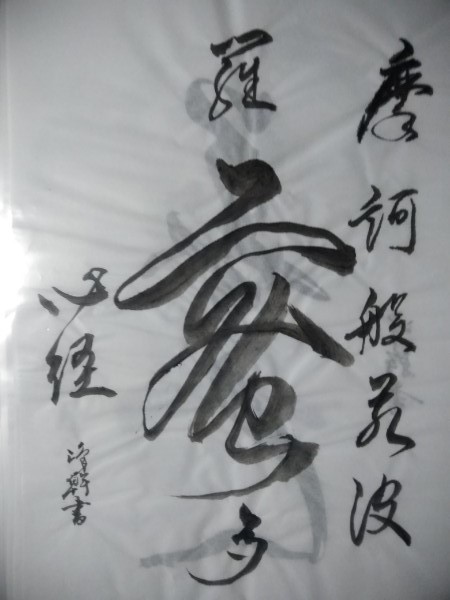 摩訶般若波
羅蜜多
心経
書